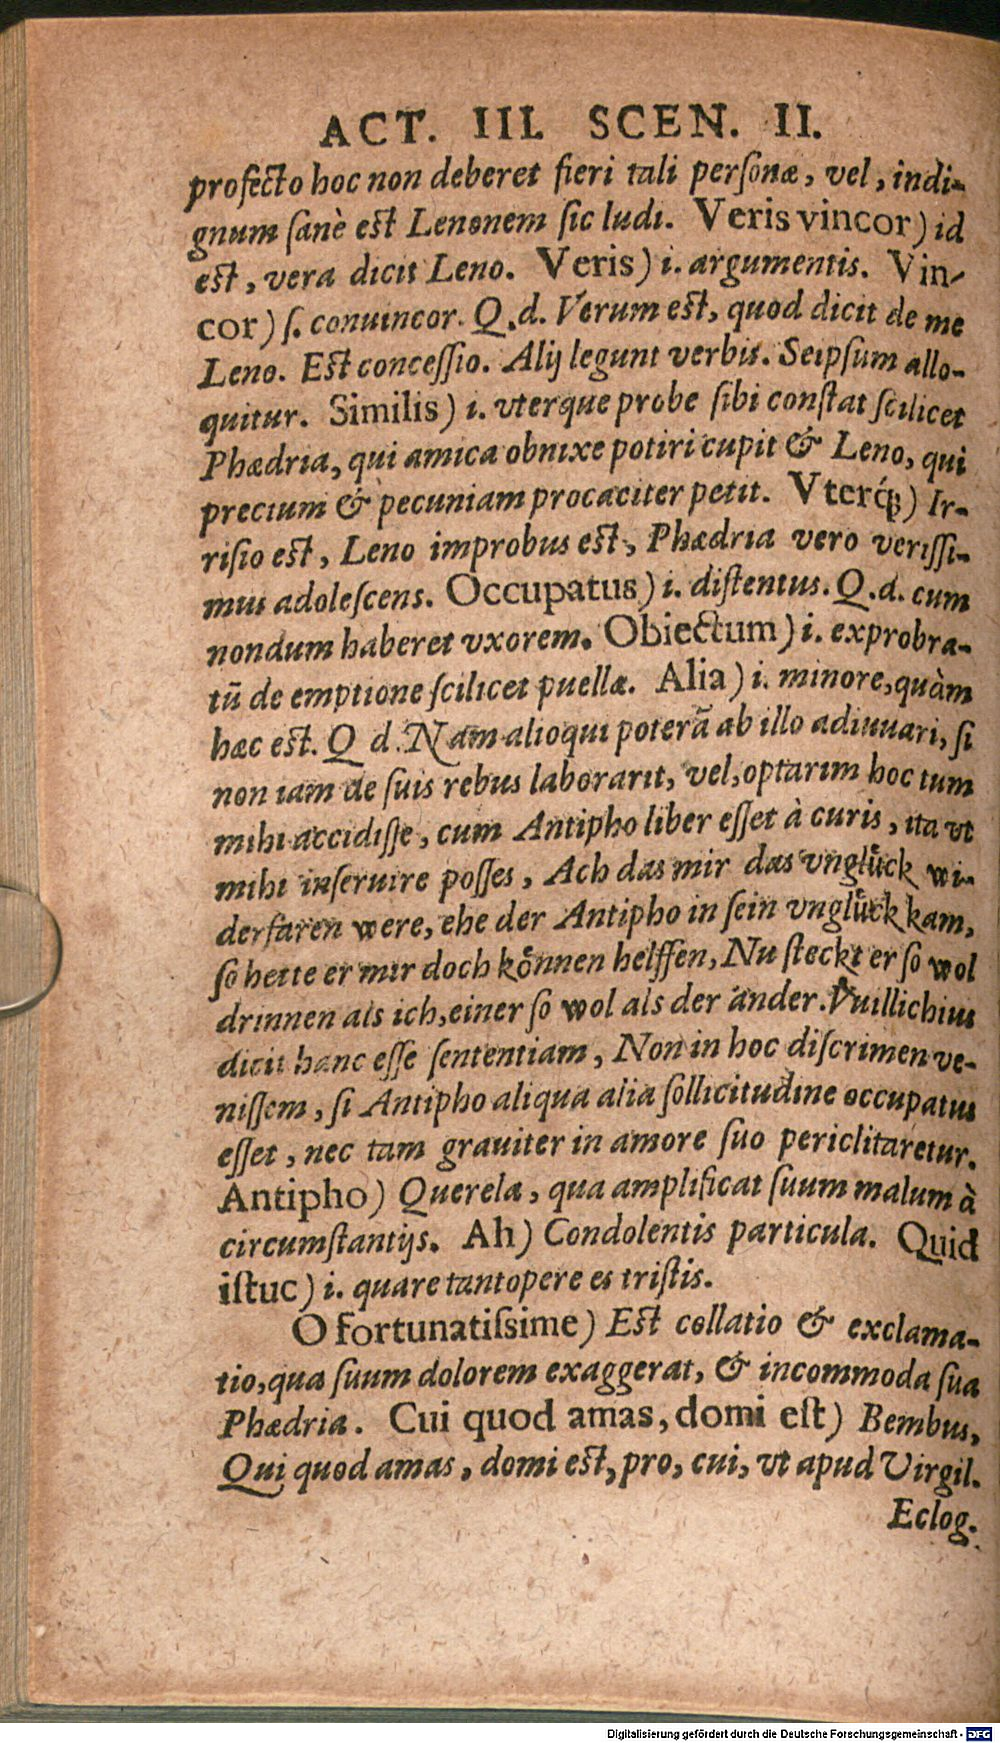 ACT. III. SCEN. II.
profecto hoc non deberet fieri tali personæ, vel, indi-
gnum sanè est Lenonem sic ludi. Veris vincor) id
est, vera dicit Leno. Veris) i. argumentis. Vin-
cor) s. conuincor. Q. d. Verum est, quod dicit de me
Leno. Est concessio. Alij legunt verbis. Seipsum allo-
quitur. Similis) i. vterque probe sibi constat scilicet
Phædria, qui amica obnixe potiri cupit & Leno, qui
precium & pecuniam procaciter petit. Vterq́;) Ir-
risio est, Leno improbus est, Phædria vero verissi-
mus adolescens. Occupatus) i. distentus. Q. d. cum
nondum haberet vxorem. Obiectum) i. exprobra-
tũ de emptione scilicet puellæ. Alia) i. minore, quàm
hæc est. Q d. Nam alioqui poterã ab illo adiuuari, si
non iam de suis rebus laborarit, vel, optarim hoc tum
mihi accidisse, cum Antipho liber esset à curis, ita vt
mihi inseruire posses, Ach das mir das vnglůck wi-
derfaren were, ehe der Antipho in sein vnglůck kam,
so hette er mir doch kǒnnen helffen, Nu steckt er so wol
drinnen als ich, einer so wol als der ander. Vuillichius
dicit hanc esse sententiam, Non in hoc discrimen ve-
nissem, si Antipho aliqua alia sollicitudine occupatus
esset, nec tam grauiter in amore suo periclitaretur.
Antipho) Querela, qua amplificat suum malum à
circumstantijs. Ah) Condolentis particula. Quid
istuc) i. quare tantopere es tristis.
O fortunatissime) Est collatio & exclama-
tio, qua suum dolorem exaggerat, & incommoda sua
Phædria. Cui quod amas, domi est) Bembus,
Qui quod amas, domi est, pro, cui, vt apud Virgil.
Eclog.
Digitalisierung gefördert durch die Deutsche Forschungsgemeinschaft - DFG